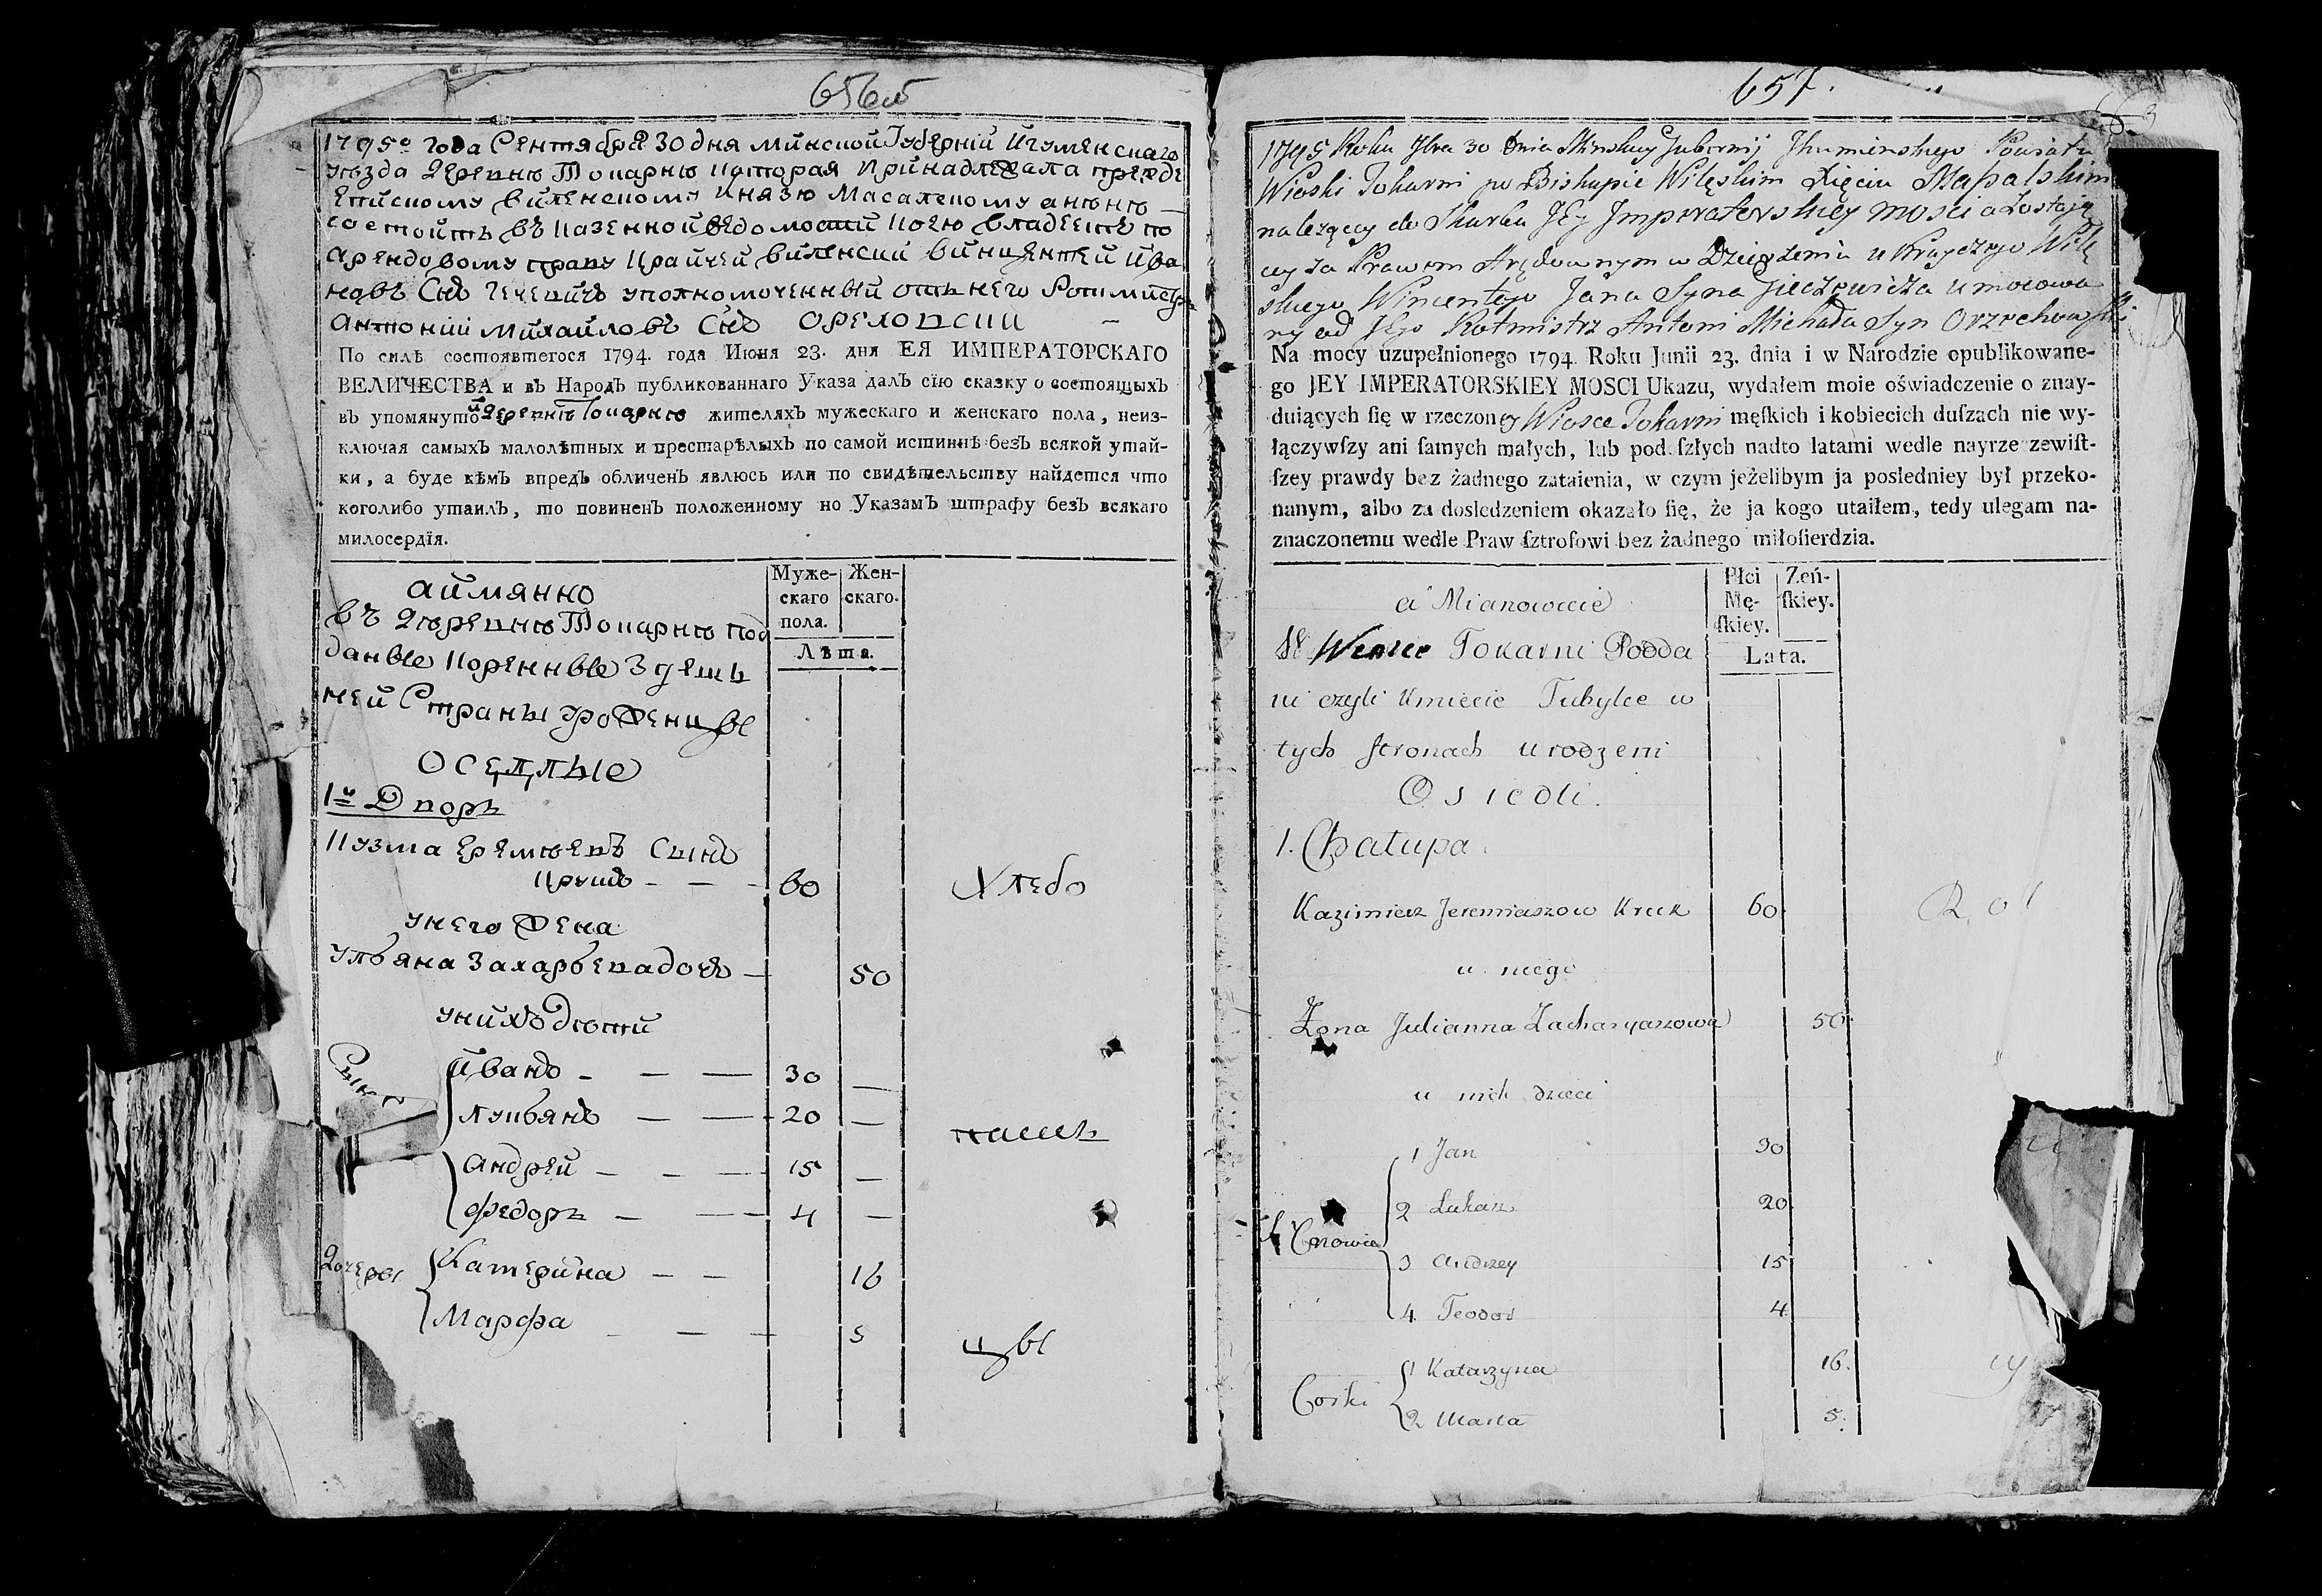 656об
1795го года Сентября 30 дня Минской Губернiи Игуменскаго
уѣзда Деревню Токарню которая принадлежала прежде
Епископу Виленскому Князю Масалскому а нынѣ
состоитъ въ казенной вѣдомости коею владѣетъ по
арендовому праву Крайчей Виленски Винцентей Ива
новъ Снъ Гечевичъ уполномоченный отъ него Ротмистръ
Антонiи Михайловъ Снъ Ореховски
По силѣ состоявшегося 1794. года Июня 23. дня ЕЯ ИМПЕРАТОРСКАГО
ВЕЛИЧЕСТВА и въ Народъ публикованнаго Указа далъ сїю сказку о состоящыхъ
въ упомянутой Деревнѣ Токарню жителяхъ мужескаго и женскаго пола, неиз-
ключая самыхъ малолѣтныхъ и престарѣлыхъ по самой истиннѣ безъ всякой утай-
ки, а буде кѣмъ впредь обличенъ явлюсь или по свидѣтельству найдется что
коголибо утаилъ, то повиненъ положенному по Указамъ штрафу безъ всякаго
милосердїя.
а имянно
Муже-
скаго
пола.
Жен-
скаго.
Лѣта.
въ Деревню Токарню под
данные коренные Здешь
ней Страны уроженцы
оседлые
1й Дворъ
Кузма Еремѣевъ Сынъ
Крукъ - - - 60 Хлебо
у него жена
Ульяна Захарьева дочь — 50
у них дѣти
Сыны Иванъ - — — 30 —
Лукьянъ — — — 20 —
пашъ
Андрей — - — 15 —
Федоръ — — — 4 —
Дочеры Катерина — — 16
Марфа - — — 5
цы
657.
1795 Roku 7bra 30 Dnia Minskiey Gubernij Jhumienskiego Powiatu
Wioski Tokarni po Biskupie Wileskim Xięciu Massalskim
nalezącey do Skarbu JEy Jmperatorskiey Mosci a zostaią
cey za Prawem Arędownym w Dzierżeniu u Krayczego Wilę
skiego Wincentego Jana Syna Gieczewicza umocowa
ny od Jego Rotmistrz Antoni Michała Syn Orzechowski
Na mocy uzupełnionego 1794. Roku Junii 23. dnia i w Narodzie opublikowane-
go JEY IMPERATORSKIEY MOSCI Ukazu, wydałem moie oświadczenie o znay-
duiących ſię w rzeczoney Wiosce Tokarni męſkich i kobiecich duſzach nie wy-
łączywſzy ani ſamych małych, lub podeſzłych nadto latami wedle nayrzezewiſt-
ſzey prawdy bez żadnego zataienia, w czym jeżelibym ja posledniey był przeko-
nanym, albo za dosledzeniem okazało ſię, że ja kogo utaiłem, tedy ulegam na-
znaczonemu wedle Praw ſztrofowi bez żadnego miłoſierdzia.
a Mianowicie
Płci
Mę-
ſkiey.
Zeń-
ſkiey.
Lata.
W Wiosce Tokarni Podda
ni czyli Kmiecie Tubylce w
tych stronach urodzeni
Osiedli.
1. Chałupa
Kazimierz Jeremiaszow Kruk 60 Rol
u niego
Żona Julianna Zacharyaszowa 50
u nich dzieci
1 Jan 30
2 Lukasz 20
Synowie
3 Andrzey 15
4 Teodor 4
Corki 1 Katarzyna 16.
2 Marta 5.